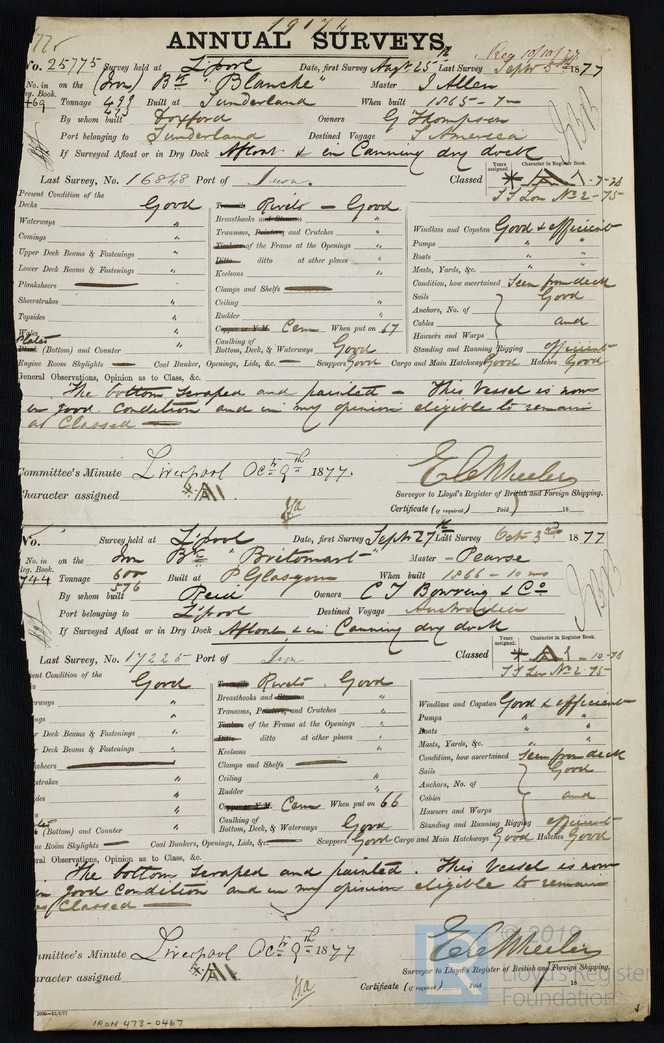 19174
775
ANNUAL SURVEYS
Reg 10/10/77
No. 25775 Survey held at L'pool Date, first Survey Augt 25th Last Survey Septr 5th 1877
No. in on the (Iron) Bk "Blanche" Master J Allen
eg. Book.
469 Tonnage 499 Built at Sunderland When built 1865-7m
473
By whom built Doxford Owners G Thompson
Port belonging to Sunderland Destined Voyage S America
If Surveyed Afloat or in Dry Dock Afloat & in Canning dry dock
Years assigned. Character in Register Book.
Last Survey, No. 16848 Port of Iron Classed A 1 - 7-76
S S Lon No 2-75
Present Condition of the
Decks Good Rivets - Good
Waterways " Breasthooks and Stemson "
Comings " Transoms, Pointers, and Crutches "
Upper Deck Beams & Fastenings " Timbers of the Frame at the Openings "
Lower Deck Beams & Fastenings " Ditto ditto at other places "
Planksheers Keelsons "
Clamps and Shelfs
Sheerstrakes " Ceiling "
Topsides " Rudder "
Wales " Copper or Y.M. Cem When put on 67
Plates
Plank (Bottom) and Counter " Caulking of Bottom, Deck, & Waterways Good
Windlass and Capstan Good & efficient
Pumps " "
Boats " "
Masts, Yards, &c. " "
Condition, how ascertained Seen from deck
Sails Good
Anchors, No. of
Cables and
Hawsers and Warps
Standing and Running Rigging efficient
Engine Room Skylights Coal Bunkers, Openings, Lids, &c. Scuppers Good Cargo and Main Hatchways Good Hatches Good
General Observations, Opinion as to Class, &c.
The bottom scraped and painted - This Vessel is now
in good condition and in my opinion eligible to remain
as Classed
Committee's Minute Liverpool Octr 9th 1877.
Character assigned A1
E C Wheeler
Surveyor to Lloyd's Register of British and Foreign Shipping.
Certificate (if required) Paid 18
No. Survey held at L'pool Date, first Survey Septr 27th Last Survey Octr 3rd 1877
No. in on the Iron Bk "Britomart" Master - Pearse
eg. Book.
744 Tonnage 600 Built at P Glasgow When built 1866-10 mo
576
By whom built Reid Owners C T Bowring & Co
Port belonging to L'pool Destined Voyage Australia
If Surveyed Afloat or in Dry Dock Afloat & in Canning dry dock
Years assigned. Character in Register Book.
Last Survey, No. 17225 Port of Iron Classed A 1 - 10-76
S S Lon No 2-75
ent Condition of the
Good Rivets. Good
erways " Breasthooks and Stemson "
ngs " Transoms, Pointers, and Crutches "
r Deck Beams & Fastenings " Timbers of the Frame at the Openings "
r Deck Beams & Fastenings " Ditto ditto at other places "
ksheers Keelsons "
Clamps and Shelfs
strakes " Ceiling "
ides " Rudder "
" Copper or Y.M. Cem When put on 66
(Bottom) and Counter " Caulking of Bottom, Deck, & Waterways Good
Windlass and Capstan Good & efficient
Pumps " "
Boats " "
Masts, Yards, &c. " "
Condition, how ascertained Seen from deck
Sails Good
Anchors, No. of
Cables and
Hawsers and Warps
Standing and Running Rigging efficient
ne Room Skylights Coal Bunkers, Openings, Lids, &c. Scuppers Good Cargo and Main Hatchways Good Hatches Good
ral Observations, Opinion as to Class, &c.
The bottom scraped and painted. This Vessel is now
in good condition and in my opinion eligible to remain
as Classed
mmittee's Minute Liverpool Octr 9th 1877
aracter assigned A1
E C Wheeler
Surveyor to Lloyd's Register of British and Foreign Shipping.
Certificate (if required) Paid 18
© 2019
Lloyd's Register
Foundation
IRON 473-0467